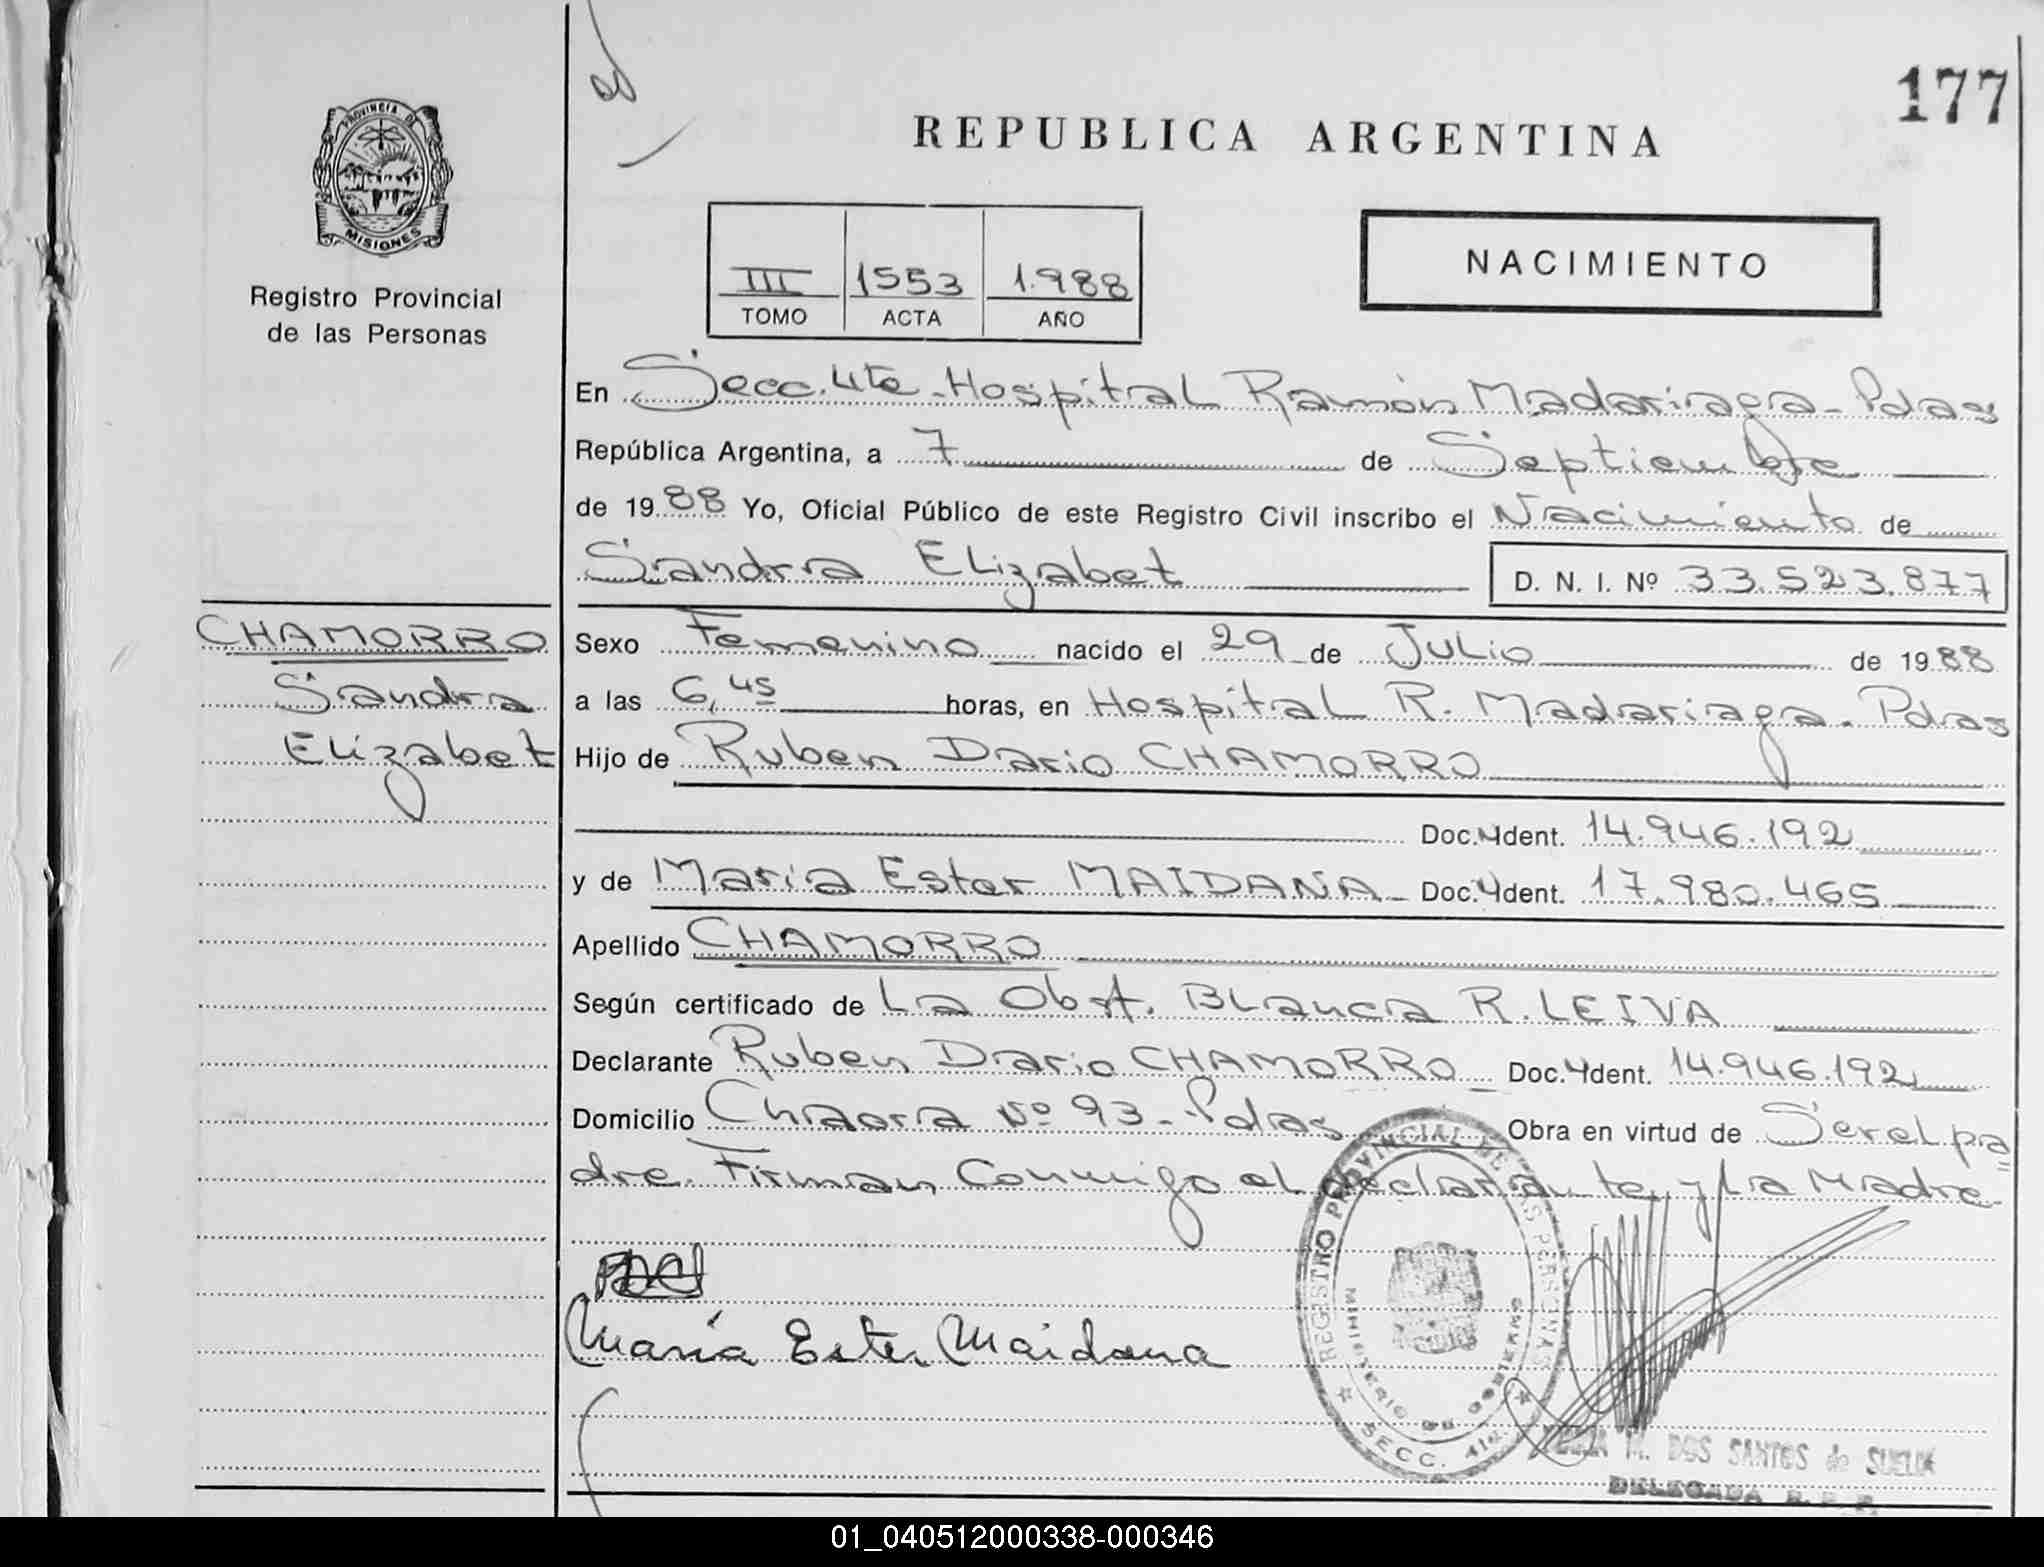 177
REPUBLICA ARGENTINA
PROVINCIA DE
MISIONES
Registro Provincial
de las Personas
III 1553 1.988
TOMO ACTA AÑO
NACIMIENTO
En Secc. 4ta - Hospital Ramón Madariaga - Pdas
República Argentina, a 7 de Septiembre
de 1988 Yo, Oficial Público de este Registro Civil inscribo el Nacimiento de
Sandra Elizabet D. N. I. Nº 33.523.877
CHAMORRO
Sandra
Elizabet
Sexo Femenino nacido el 29 de Julio de 1988
a las 6,45 horas, en Hospital R. Madariaga. Pdas
Hijo de Ruben Dario CHAMORRO
Doc. Ident. 14.946.192
y de Maria Ester MAIDANA Doc. Ident. 17.980.465
Apellido CHAMORRO
Según certificado de La Obst. Blanca R. LEIVA
Declarante Ruben Dario CHAMORRO Doc. Ident. 14.946.192
Domicilio Chacra Nº 93 - Pdas Obra en virtud de Ser el pa
dre. Firman Conmigo el declarante y La Madre.
María Ester Maidana
REGISTRO PROVINCIAL DE LAS PERSONAS
MINISTERIO DE GOBIERNO
SECC. 4ta.
M. DOS SANTOS de
DELEGADA R. P. P.
01_040512000338-000346